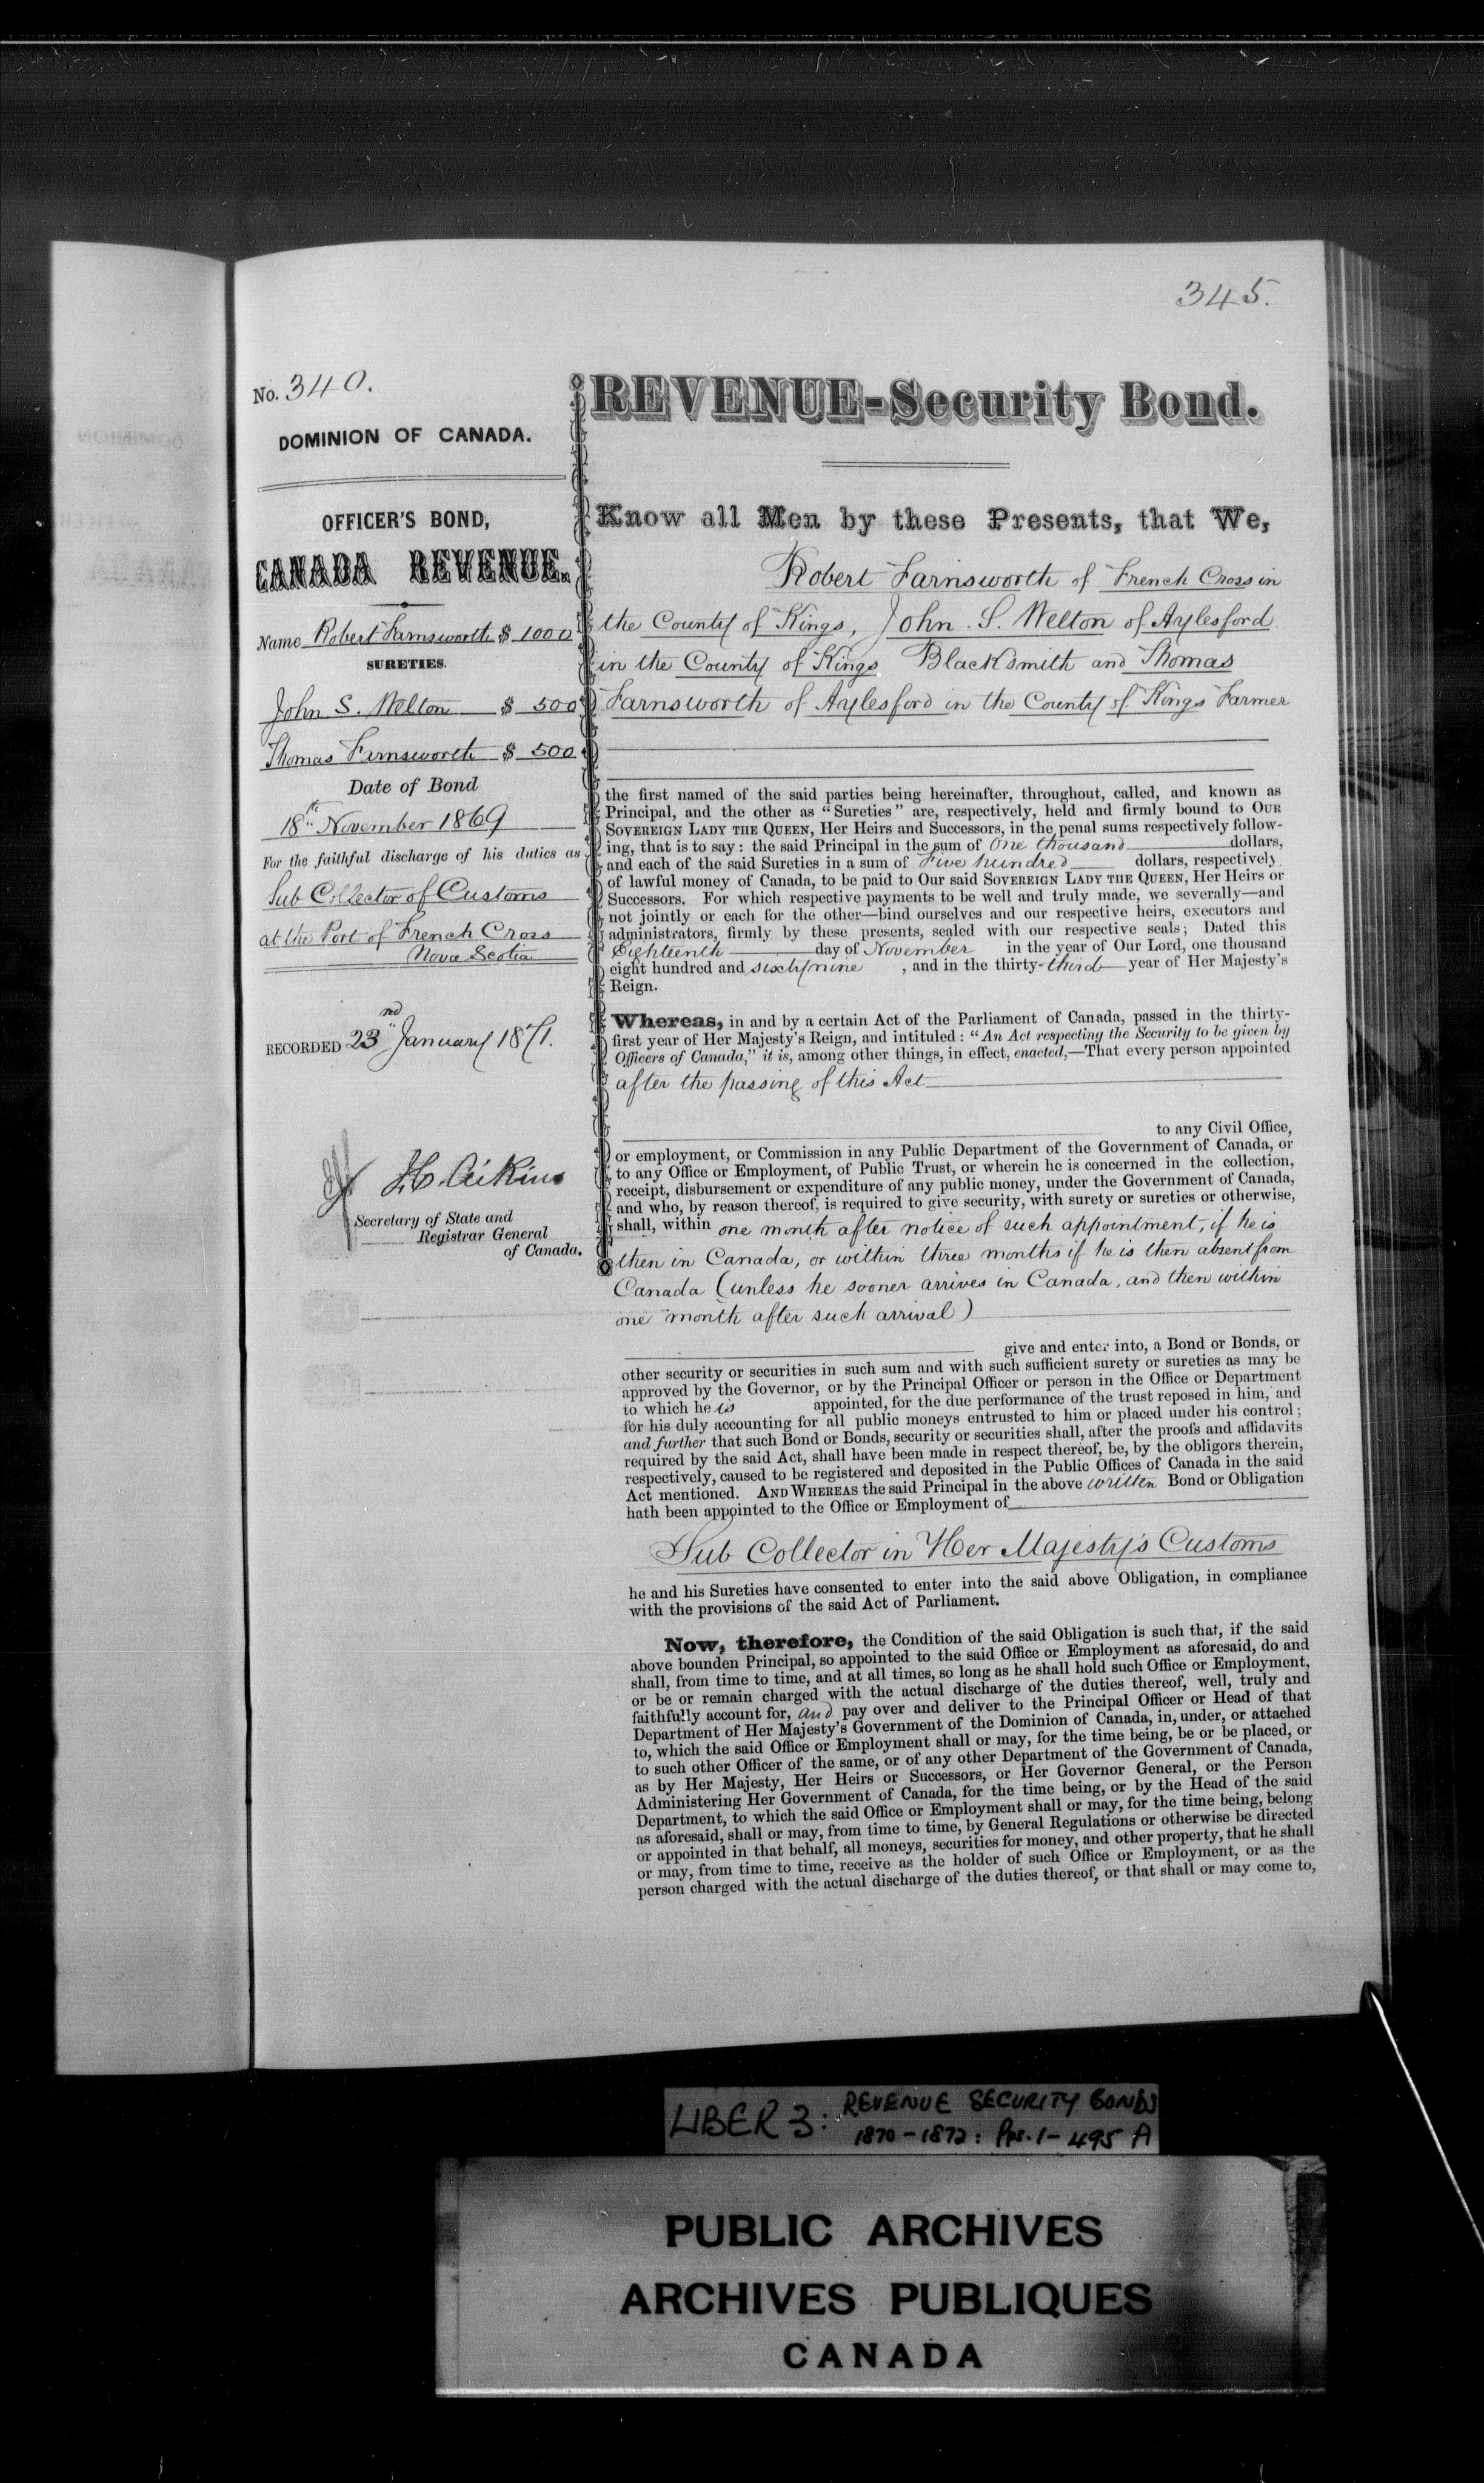 345.
No. 340.
DOMINION OF CANADA.
OFFICER'S BOND,
CANADA REVENUE.
Name Robert Farnsworth $ 1000
SURETIES.
John S. Welton $ 500
Thomas Farnsworth $ 500
Date of Bond
18th November 1869
For the faithful discharge of his duties as
Sub Collector of Customs
at the Port of French Cross
Nova Scotia
RECORDED 23rd January 1871.
J.C. Aikins
Secretary of State and
Registrar General
of Canada.
REVENUE-Security Bond.
Know all Men by these Presents, that We,
Robert Farnsworth of French Cross in
the County of Kings, John S. Welton of Aylesford
in the County of Kings Blacksmith and Thomas
Farnsworth of Aylesford in the County of Kings Farmer
the first named of the said parties being hereinafter, throughout, called, and known as
Principal, and the other as "Sureties" are, respectively, held and firmly bound to OUR
SOVEREIGN LADY THE QUEEN, Her Heirs and Successors, in the penal sums respectively follow-
ing, that is to say: the said Principal in the sum of One thousand dollars,
and each of the said Sureties in a sum of Five hundred dollars, respectively,
of lawful money of Canada, to be paid to Our said SOVEREIGN LADY THE QUEEN, Her Heirs or
Successors. For which respective payments to be well and truly made, we severally—and
not jointly or each for the other—bind ourselves and our respective heirs, executors and
administrators, firmly by these presents, sealed with our respective seals; Dated this
Eighteenth day of November in the year of Our Lord, one thousand
eight hundred and sixty nine , and in the thirty-third year of Her Majesty's
Reign.
Whereas, in and by a certain Act of the Parliament of Canada, passed in the thirty-
first year of Her Majesty's Reign, and intituled: "An Act respecting the Security to be given by
Officers of Canada," it is, among other things, in effect, enacted,—That every person appointed
after the passing of this Act
to any Civil Office,
or employment, or Commission in any Public Department of the Government of Canada, or
to any Office or Employment, of Public Trust, or wherein he is concerned in the collection,
receipt, disbursement or expenditure of any public money, under the Government of Canada,
and who, by reason thereof, is required to give security, with surety or sureties or otherwise,
shall, within one month after notice of such appointment, if he is
then in Canada, or within three months if he is then absent from
Canada (unless he sooner arrives in Canada, and then within
one month after such arrival)
give and enter into, a Bond or Bonds, or
other security or securities in such sum and with such sufficient surety or sureties as may be
approved by the Governor, or by the Principal Officer or person in the Office or Department
to which he is appointed, for the due performance of the trust reposed in him, and
for his duly accounting for all public moneys entrusted to him or placed under his control;
and further that such Bond or Bonds, security or securities shall, after the proofs and affidavits
required by the said Act, shall have been made in respect thereof, be, by the obligors therein,
respectively, caused to be registered and deposited in the Public Offices of Canada in the said
Act mentioned. AND WHEREAS the said Principal in the above written Bond or Obligation
hath been appointed to the Office or Employment of
Sub Collector in Her Majesty's Customs
he and his Sureties have consented to enter into the said above Obligation, in compliance
with the provisions of the said Act of Parliament.
Now, therefore, the Condition of the said Obligation is such that, if the said
above bounden Principal, so appointed to the said Office or Employment as aforesaid, do and
shall, from time to time, and at all times, so long as he shall hold such Office or Employment,
or be or remain charged with the actual discharge of the duties thereof, well, truly and
faithfully account for, and pay over and deliver to the Principal Officer or Head of that
Department of Her Majesty's Government of the Dominion of Canada, in, under, or attached
to, which the said Office or Employment shall or may, for the time being, be or be placed, or
to such other Officer of the same, or of any other Department of the Government of Canada,
as by Her Majesty, Her Heirs or Successors, or Her Governor General, or the Person
Administering Her Government of Canada, for the time being, or by the Head of the said
Department, to which the said Office or Employment shall or may, for the time being, belong
as aforesaid, shall or may, from time to time, by General Regulations or otherwise be directed
or appointed in that behalf, all moneys, securities for money, and other property, that he shall
or may, from time to time, receive as the holder of such Office or Employment, or as the
person charged with the actual discharge of the duties thereof, or that shall or may come to,
LIBER 3: REVENUE SECURITY BONDS
1870-1872: Pps. 1-495 A
PUBLIC ARCHIVES
ARCHIVES PUBLIQUES
CANADA